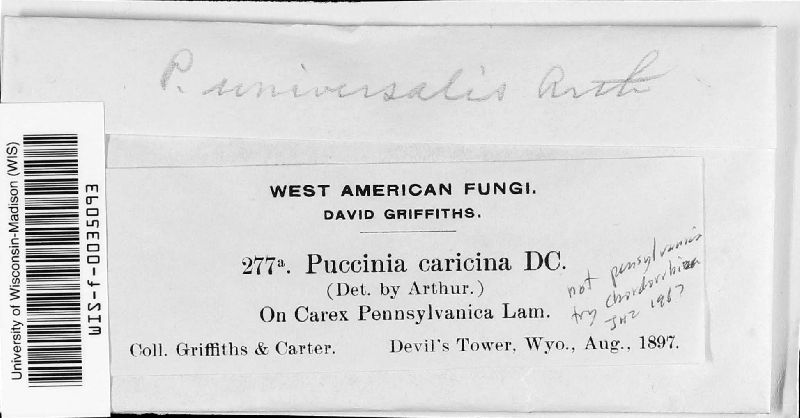 P. universalis Arth
University of Wisconsin-Madison (WIS)
WIS-f-0035093
WEST AMERICAN FUNGI.
DAVID GRIFFITHS.
277ª. Puccinia caricina DC.
(Det. by Arthur.)
On Carex Pennsylvanica Lam.
Coll. Griffiths & Carter. Devil's Tower, Wyo., Aug., 1897.
not pensylvanica
try chordorrhiza
1967